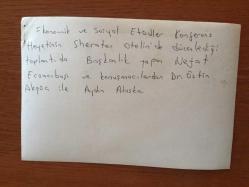 Ekonomik ve Sosyal Etüdler Konferans
Heyetinin Sheraton Otelin'de düzenlediği
toplantıda Başkanlık yapan Nejat
Eczacıbaşı ve konuşmacılardan Dr. Üstün
ile Aydın